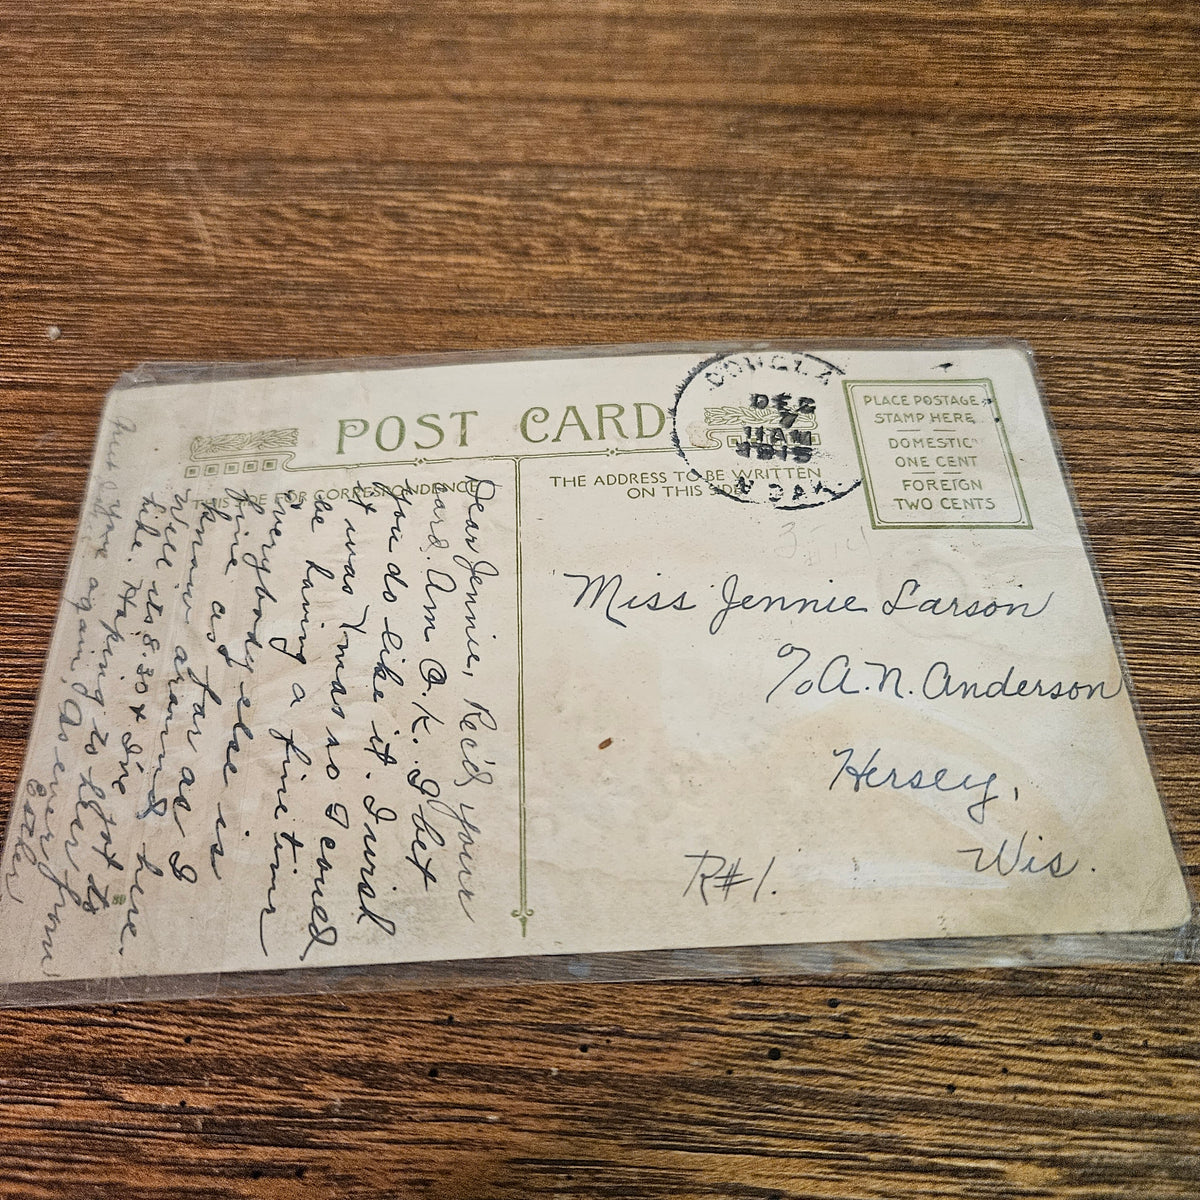 POST CARD
THIS SIDE FOR CORRESPONDENCE
THE ADDRESS TO BE WRITTEN
ON THIS SIDE
PLACE POSTAGE
STAMP HERE
DOMESTIC
ONE CENT
FOREIGN
TWO CENTS
DEC
7
11 AM
1915
N. DAK.
Dear Jennie, Rec'd your
card. Am O.K. I bet
you do like it. I wish
it was Xmas so I could
be having a fine time
Everybody else is
fine as far as I
know around here.
Well its 8.30 & I've got to
Hoping to hear from
you again, As ever
Esther
Miss Jennie Larson
c/o A. N. Anderson
Hersey,
Wis.
R#1.